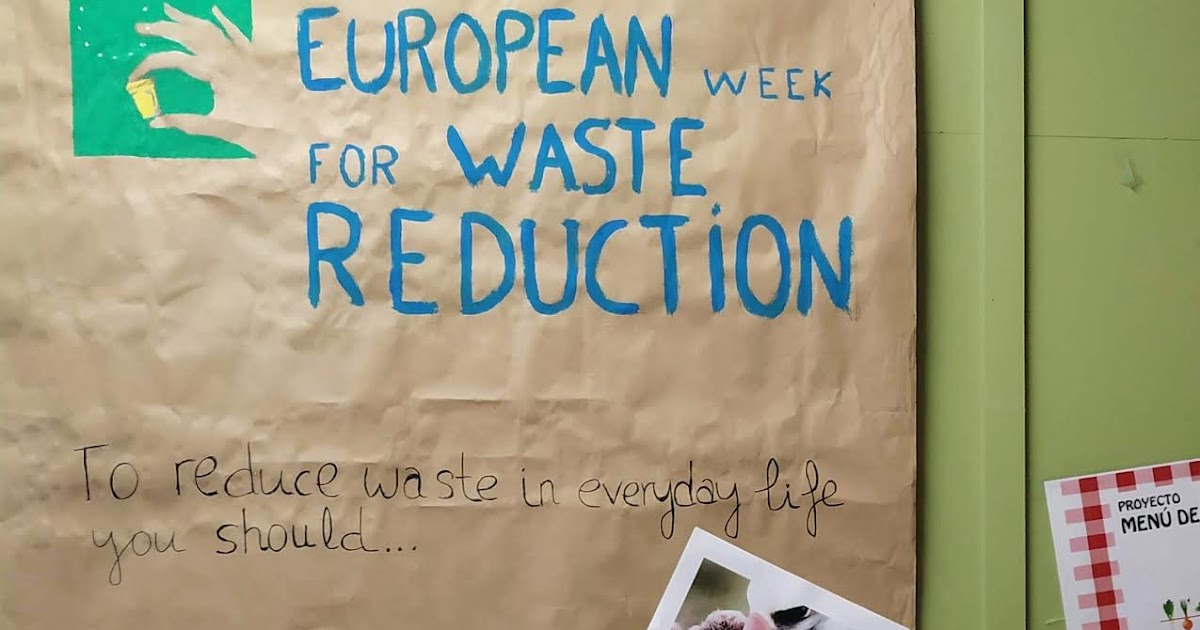 EUROPEAN WEEK
FOR WASTE
REDUCTION
To reduce waste in everyday life
you should...
PROYECTO
MENÚ DE